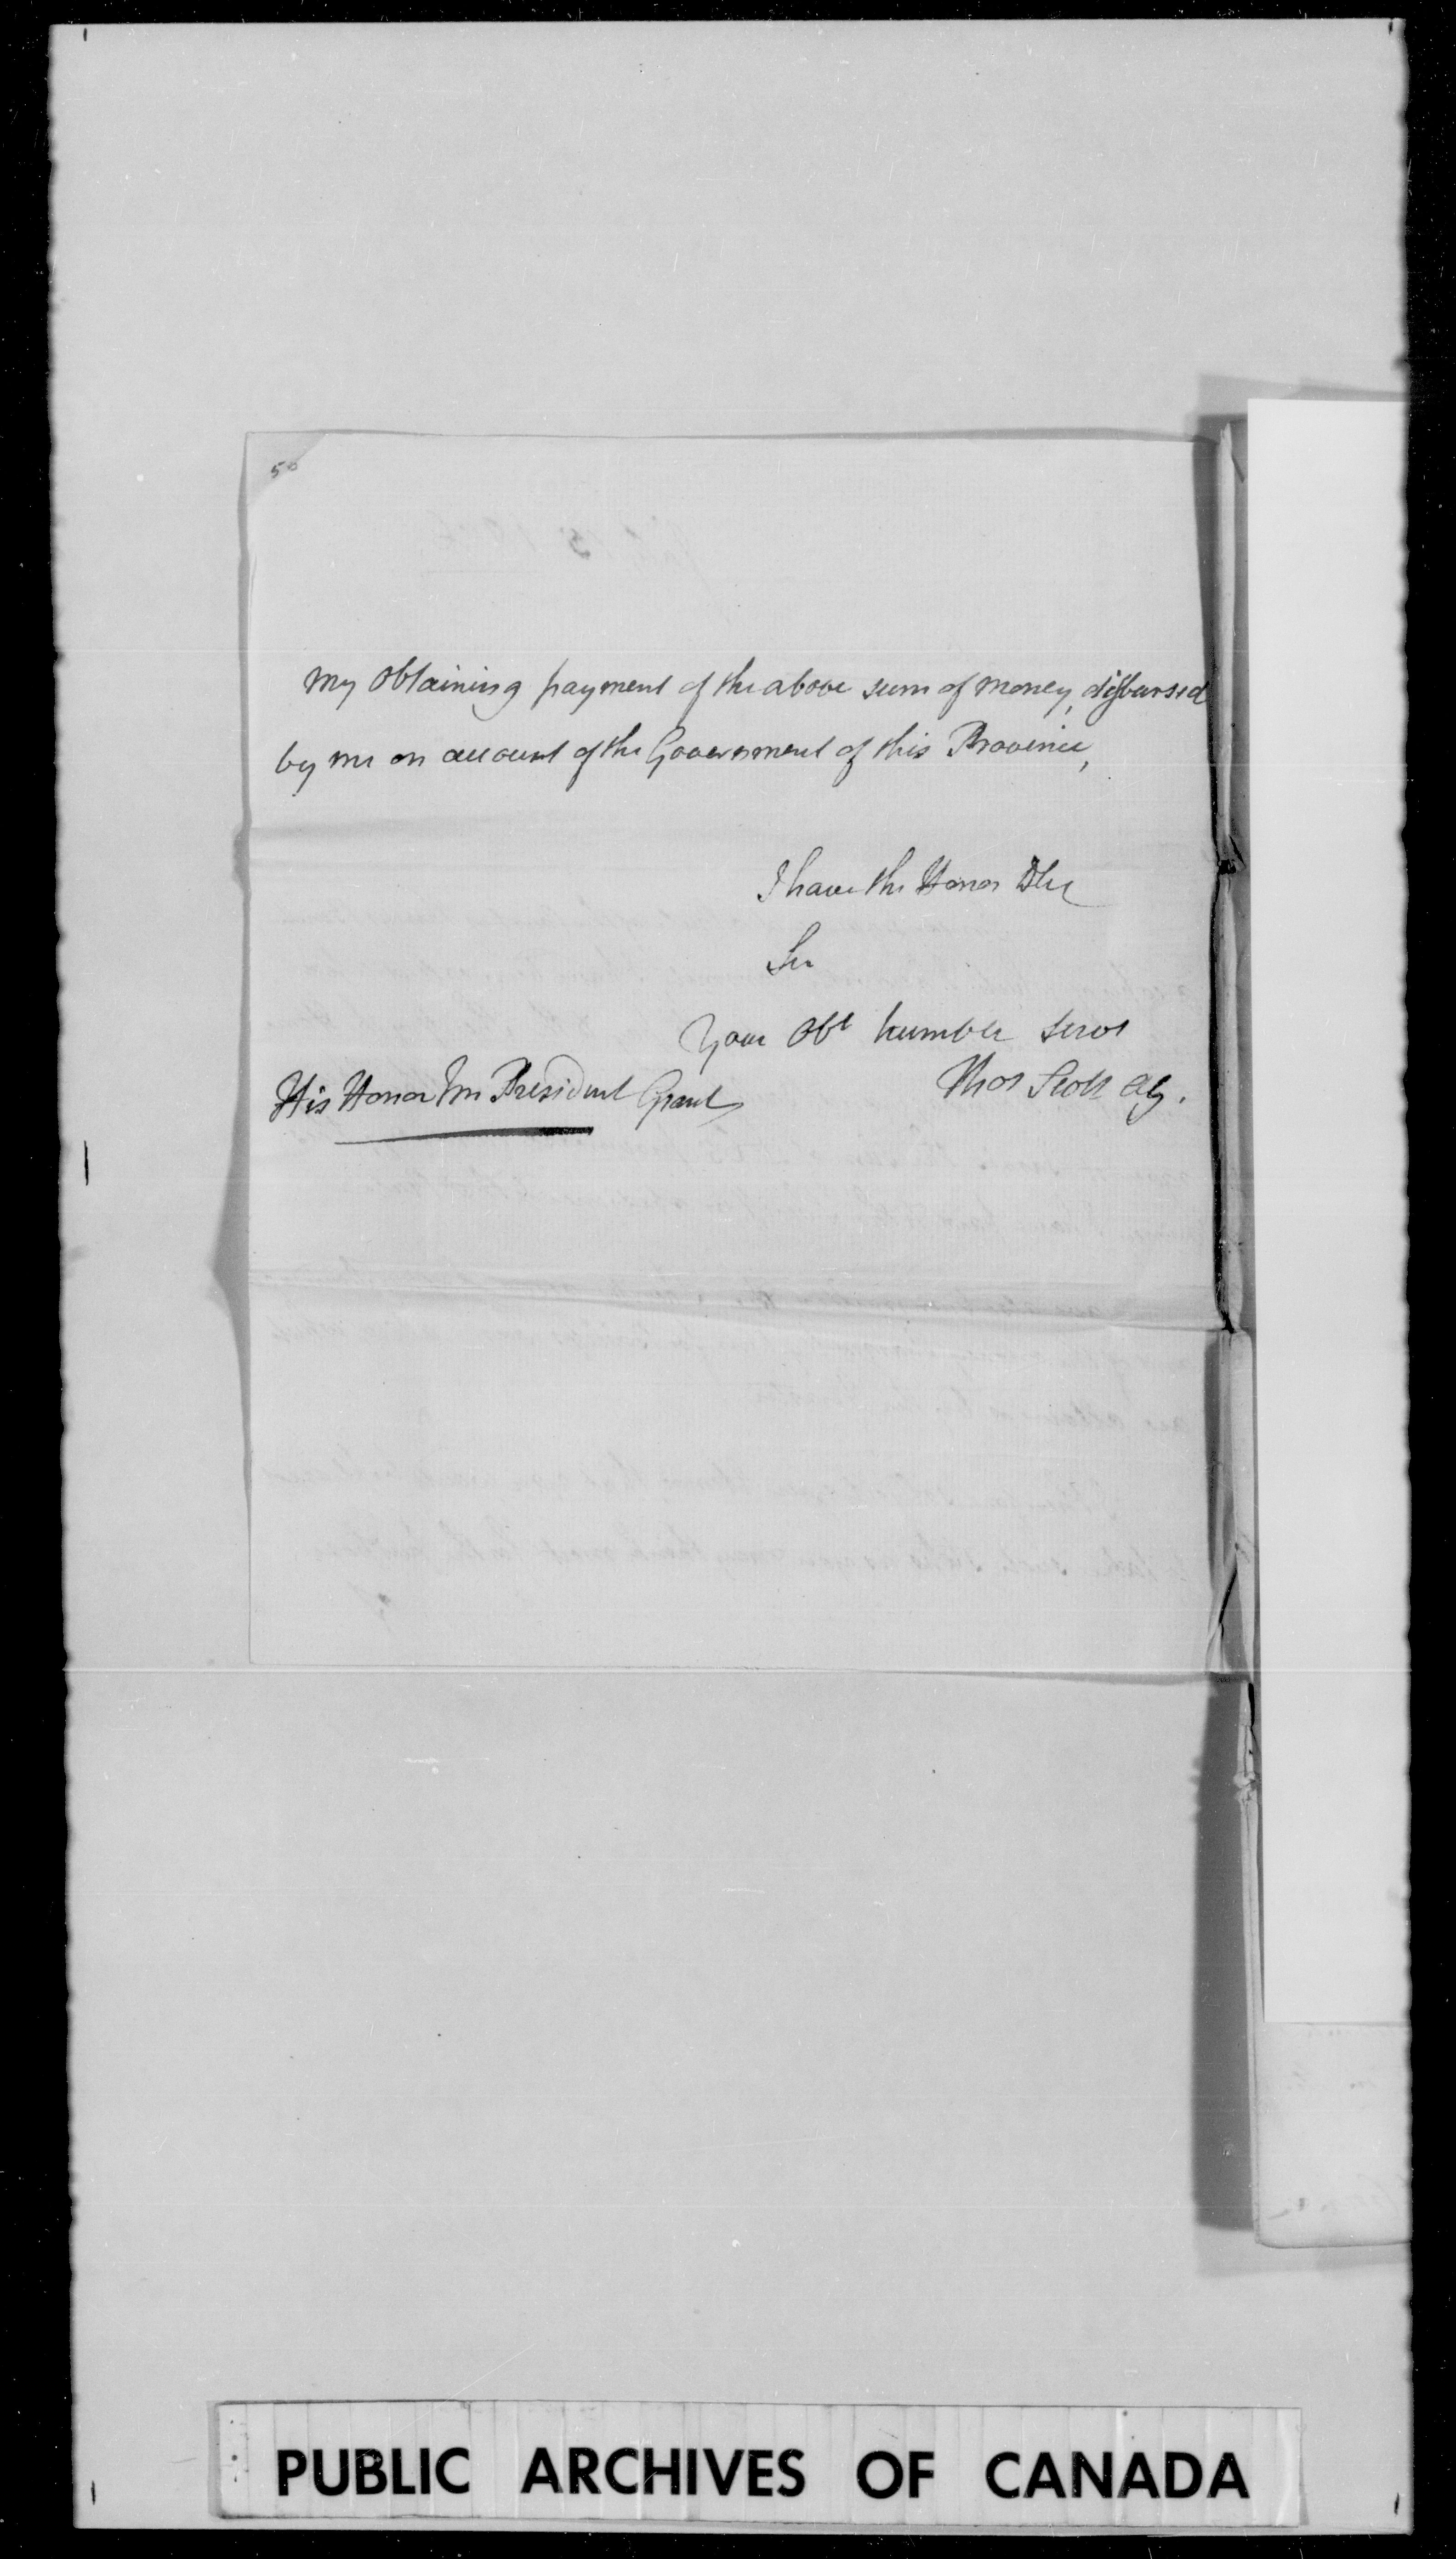 50
My Obtaining payment of the above sum of Money, disbursed
by me on account of the Government of this Province,
I have the Honor to be
Sir
Your Obt humble Servt
His Honor Mr President Grant
Thos Scott Ag.
PUBLIC ARCHIVES OF CANADA